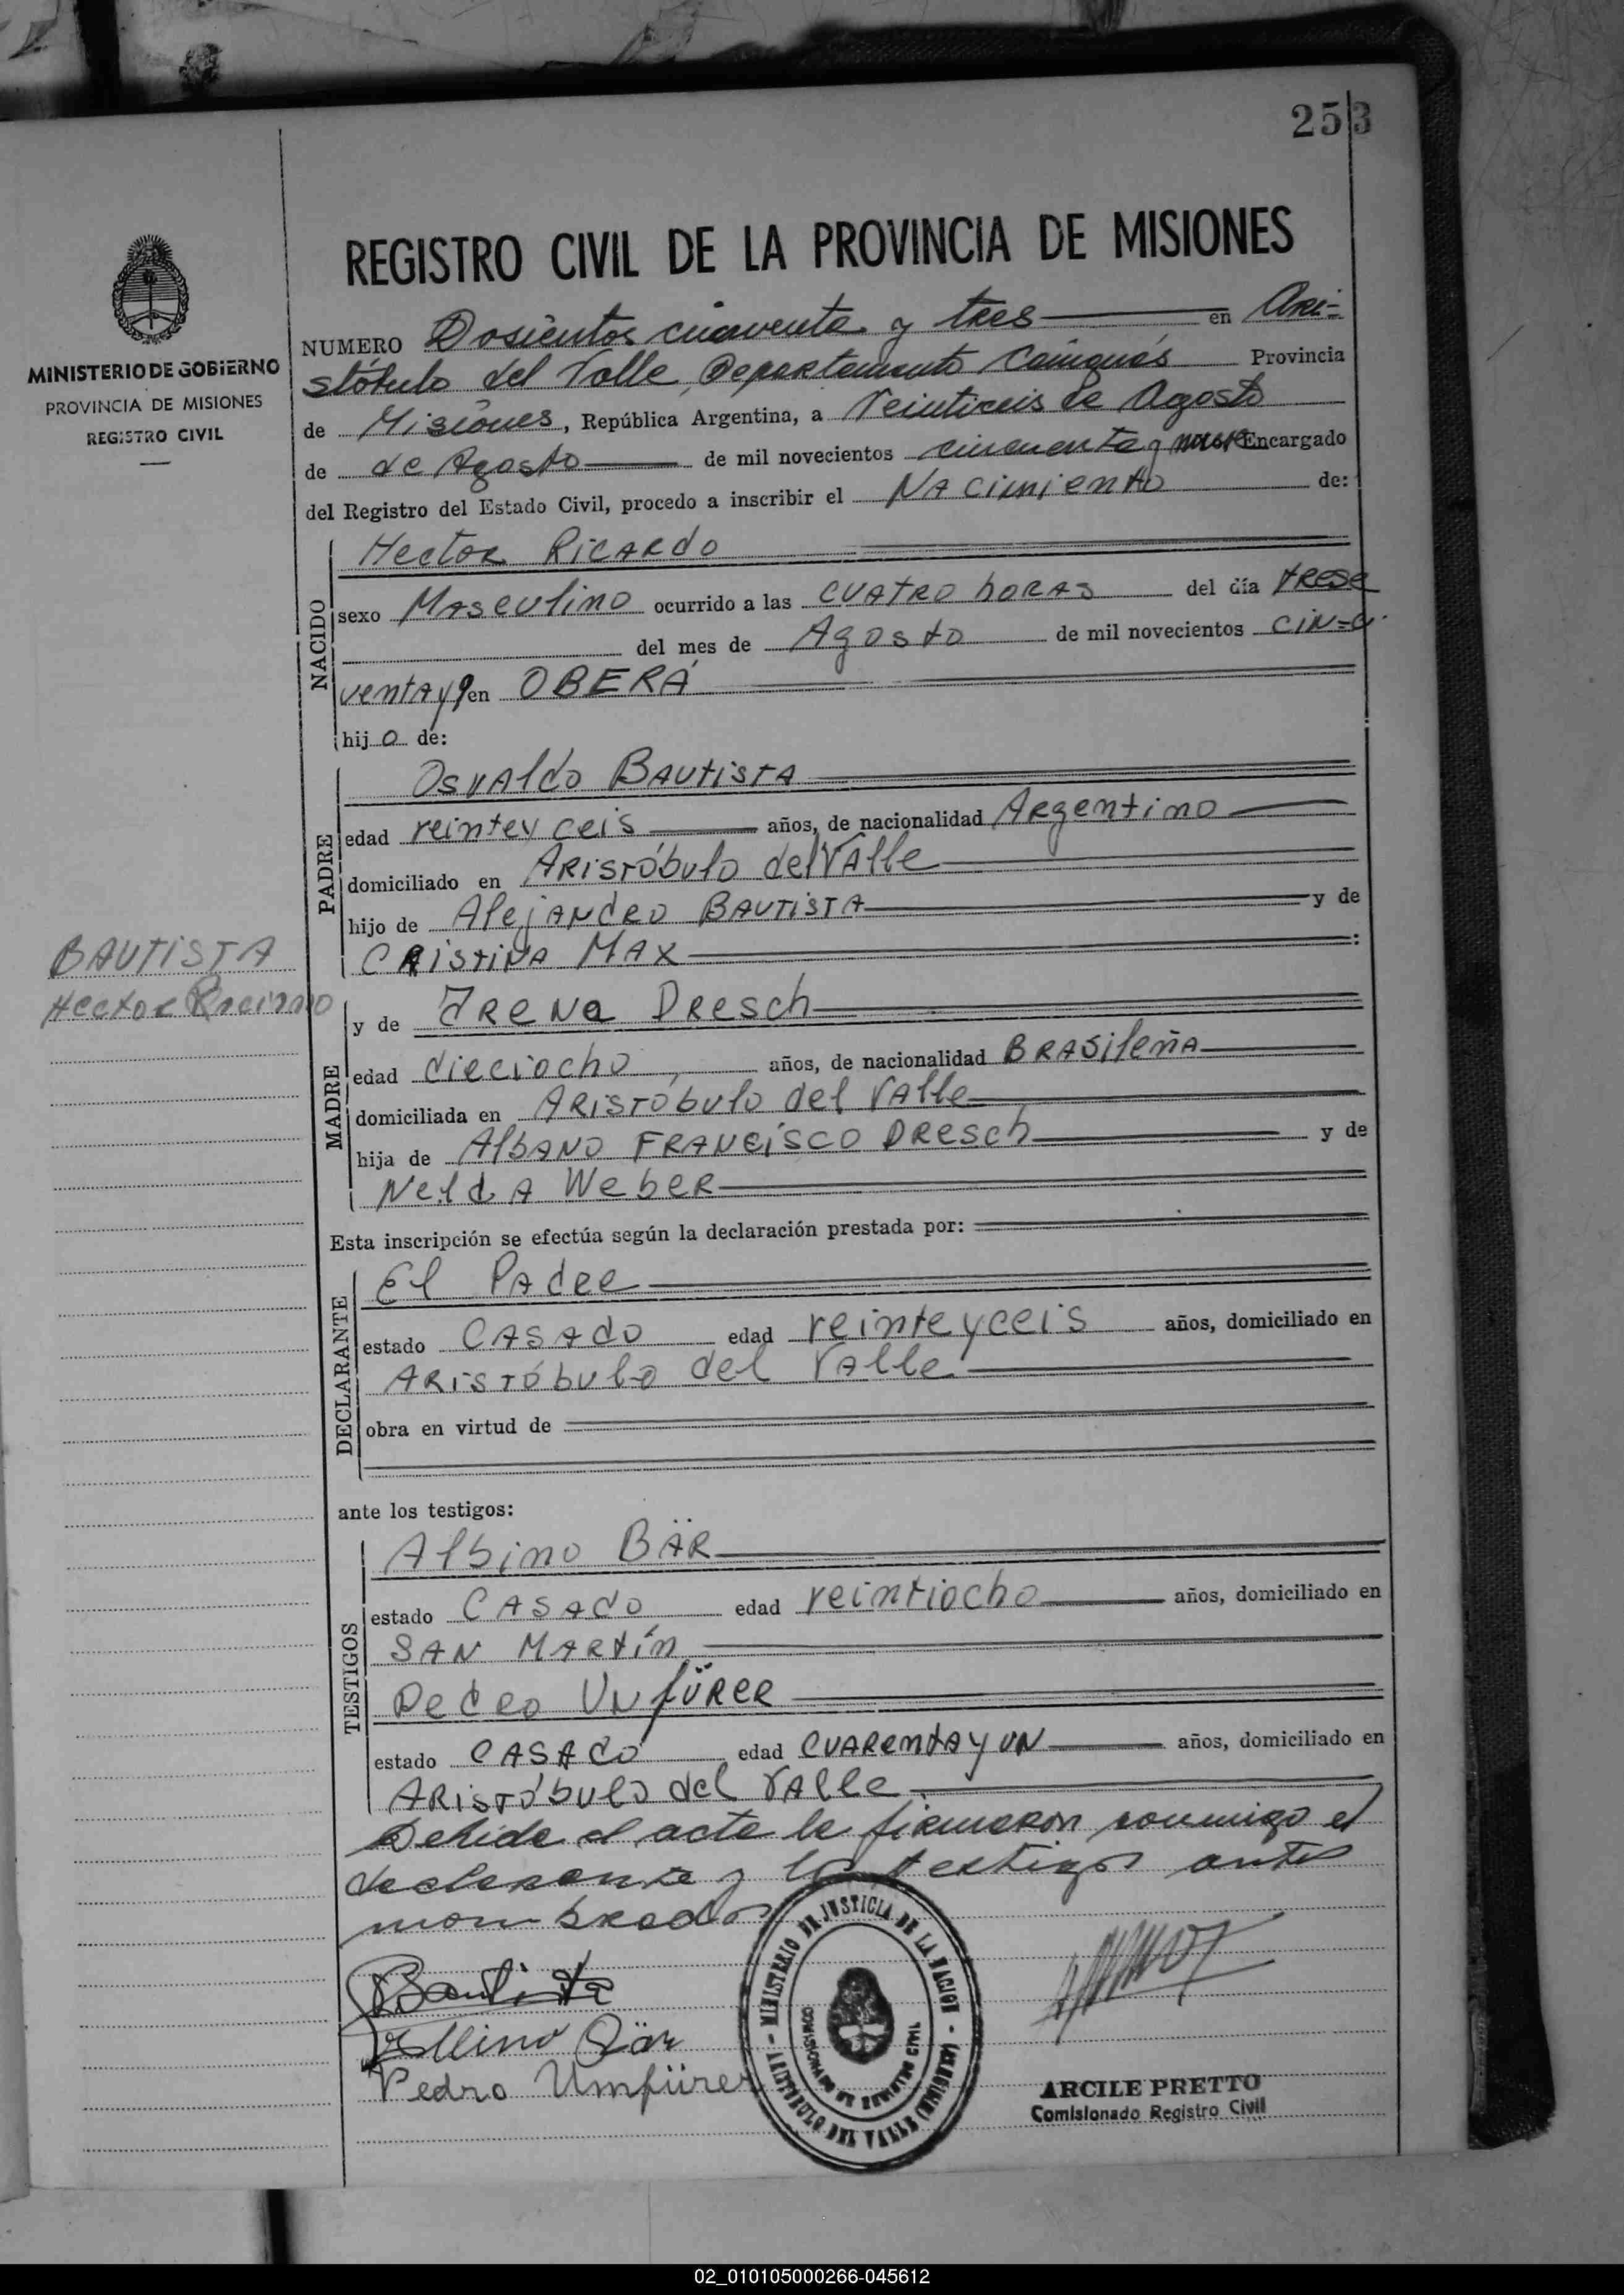 253
REGISTRO CIVIL DE LA PROVINCIA DE MISIONES
MINISTERIO DE GOBIERNO
PROVINCIA DE MISIONES
REGISTRO CIVIL
NUMERO Dosientos cuarenta y tres en Ari=
stóbulo del Valle, Departamento Cainguás Provincia
de Misiones, República Argentina, a Veintiseis de Agosto
de de Agosto de mil novecientos cincuenta y nueve Encargado
del Registro del Estado Civil, procedo a inscribir el NAcimiento de:
NACIDO
Hector RicARdo
sexo MAsculino ocurrido a las cuATRo hoRAs del día trese
del mes de Agosto de mil novecientos cin=c
uentAy9 en OBERÁ
hijo de:
PADRE
OsvAldo BAutistA
edad veintey ceis años, de nacionalidad Argentino
domiciliado en ARistóbulo delVAlle
hijo de AlejANdRo BAutistA y de
CRistiNA MAx :
BAUTISTA
Hector
MADRE
y de IReNa DResch
edad dieciocho, años, de nacionalidad BRAsileñA
domiciliada en ARistóbulo del VAlle
hija de AlbANo FRANcisco DResch y de
NeldA WebeR
Esta inscripción se efectúa según la declaración prestada por:
DECLARANTE
El PAdRe
estado CAsAdo edad veinteyceis años, domiciliado en
ARistóbulo del VAlle
obra en virtud de
ante los testigos:
TESTIGOS
Albino BÄR
estado CAsAdo edad veintiocho años, domiciliado en
SAN MARtín
PedRo UNfüReR
estado CAsAdo edad cuARentAy uN años, domiciliado en
ARistóbulo del VAlle.
el acta la firmaron conmigo el
declarante y los testigos antes
nombrados
Bautista
Albino Bär
Pedro Umfürer
MINISTERIO DE JUSTICIA DE LA NACION
COMISIONADO DE REGISTRO CIVIL
ARISTOBULO DEL VALLE (MISIONES)
ARCILE PRETTO
Comisionado Registro Civil
02_010105000266-045612